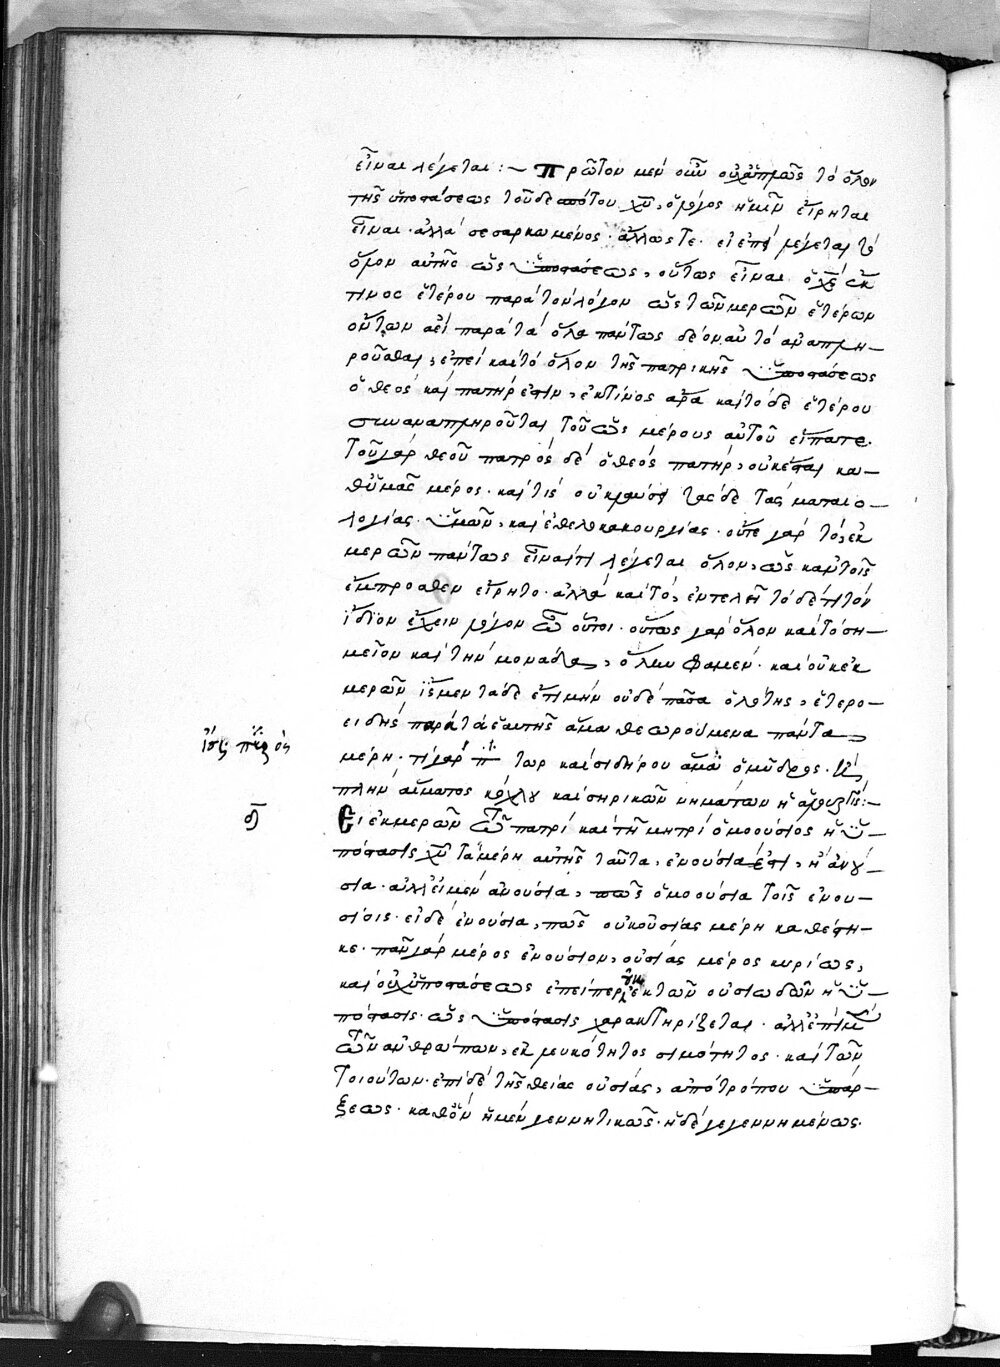 εἶναι λέγεται :~ Πρῶτον μὲν οὖν οὐχ ἁπλῶς τὸ ὅλον
τῆς ὑποστάσεως τοῦ δεσπότου χῦ, ὁ λόγος ἡμῖν εἴρηται
εἶναι. ἀλλὰ σεσαρκωμένος. ἄλλως τε. εἰ ἐπεὶ λέγεται τὸ
ὅλον αὐτῆς ὡς ὑποστάσεως, οὕτως εἶναι ὁ χς ἔκ
τινος ἑτέρου παρὰ τὸν λόγον ὡς τῶν μερῶν ἑτέρων
ὄντων ἀεὶ παρὰ τὰ ὅλα πάντως δέον αὐτὸ ἀναπλη-
ροῦσθαι, ἐπεὶ καὶ τὸ ὅλον τῆς πατρικῆς ὑποστάσεως
ὁ θεὸς καὶ πατήρ ἐστιν, ἔκ τινος ἄρα καὶ τόδε ἑτέρου
συναναπληροῦται τοῦ ὡς μέρους αὐτοῦ εἴπατε.
τοῦ γὰρ θεοῦ πατρὸς δὲ ὁ θεὸς πατὴρ, οὐκ ἔσται κα-
θ' ὑμᾶς μέρος. καὶ τίς οὐ τάσδε τὰς ματαιο-
λογίας ὑμῶν, καὶ ἐθελοκακουργίας. οὔτε γὰρ τὸ, ἐκ
μερῶν πάντως εἶναί τι λέγεται ὅλον, ὡς κἀν τοῖς
ἔμπροσθεν εἴρητο. ἀλλὰ καὶ τὸ, ἐντελῆ τὸδέ τι τὸν
ἴδιον ἔχειν λόγον οὗτοι. οὕτως γὰρ ὅλον καὶ τὸ ση-
μεῖον καὶ τὴν μονάδα, ὅλην φαμέν. καὶ οὐκ ἐκ
μερῶν οὐδὲ πᾶσα ὁλότης, ἑτερο-
ειδῆς παρὰ τὰ ἑαυτῆς ἅμα θεωρούμενα πάντα
μέρη. τί γὰρ καὶ σιδήρου ἅμα ὁ μύδρος.
πλὴν αἵματος κόχλου καὶ σηρικῶν νημάτων ἡ ἁλουργίς :~
Εἰ ἐκ μερῶν τῶν πατρὶ καὶ τῇ μητρὶ ὁμοούσιος ἡ ὑ-
πόστασις χῦ τὰ μέρη αὐτῆς ταῦτα, ἐνούσιά ἐστι, ἢ ἀνού-
σια. ἀλλ' εἰ μὲν ἀνούσια, πῶς ὁμοούσια τοῖς ἐνου-
σίοις. εἰ δὲ ἐνούσια, πῶς οὐκ οὐσίας μέρη καθέστη-
κε. πᾶν γὰρ μέρος ἐνούσιον, οὐσίας μέρος κυρίως,
καὶ οὐχ ὑποστάσεως ἐπείπερ ἐκ τῶν οὐσιωδῶν ἡ ὑ-
πόστασις ὡς ὑπόστασις χαρακτηρίζεται. ἀλλ' ἐπὶ μὲν
τῶν ἀνθρώπων, ἐκ λευκότητος σιμότητος. καὶ τῶν
τοιούτων. ἐπὶ δὲ τῆς θείας οὐσίας, ἀπὸ τρόπου ὑπάρ-
ξεως. καθ' ὃν ἡ μὲν γεννητικῶς. ἡ δὲ γεγεννημένως.